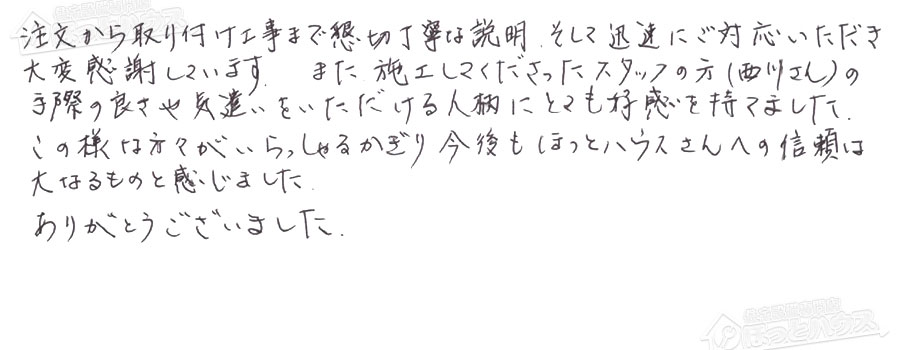 注文から取り付け工事まで懇切丁寧な説明、そして迅速にご対応いただき
大変感謝しています。 また、施工してくださったスタッフの方(西川さん)の
手際の良さや気遣いをいただける人柄にとても好感を持てました。
この様な方々がいらっしゃるかぎり今後もほっとハウスさんへの信頼は
大なるものと感じました。
ありがとうございました。
ほっとハウス